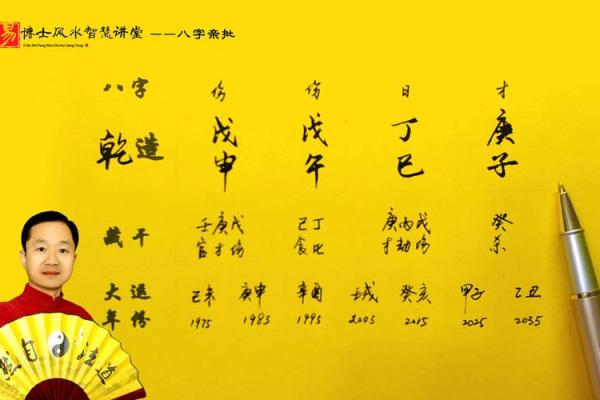 易 博士风水智慧讲堂 ——八字亲批
Yi Bo Shi Feng Shui Zhi Hui Jiang Tang
八字 伤 伤 日 才
乾造 戊申 戊午 丁巳 庚子
藏干 壬庚戊 己丁 庚丙戊 癸
官才伤 食比 才劫伤 杀
大运 己未 庚申 辛酉 壬戌 癸亥 甲子 乙丑
年份 1975 1985 1995 2005 2015 2025 2035
然自法道